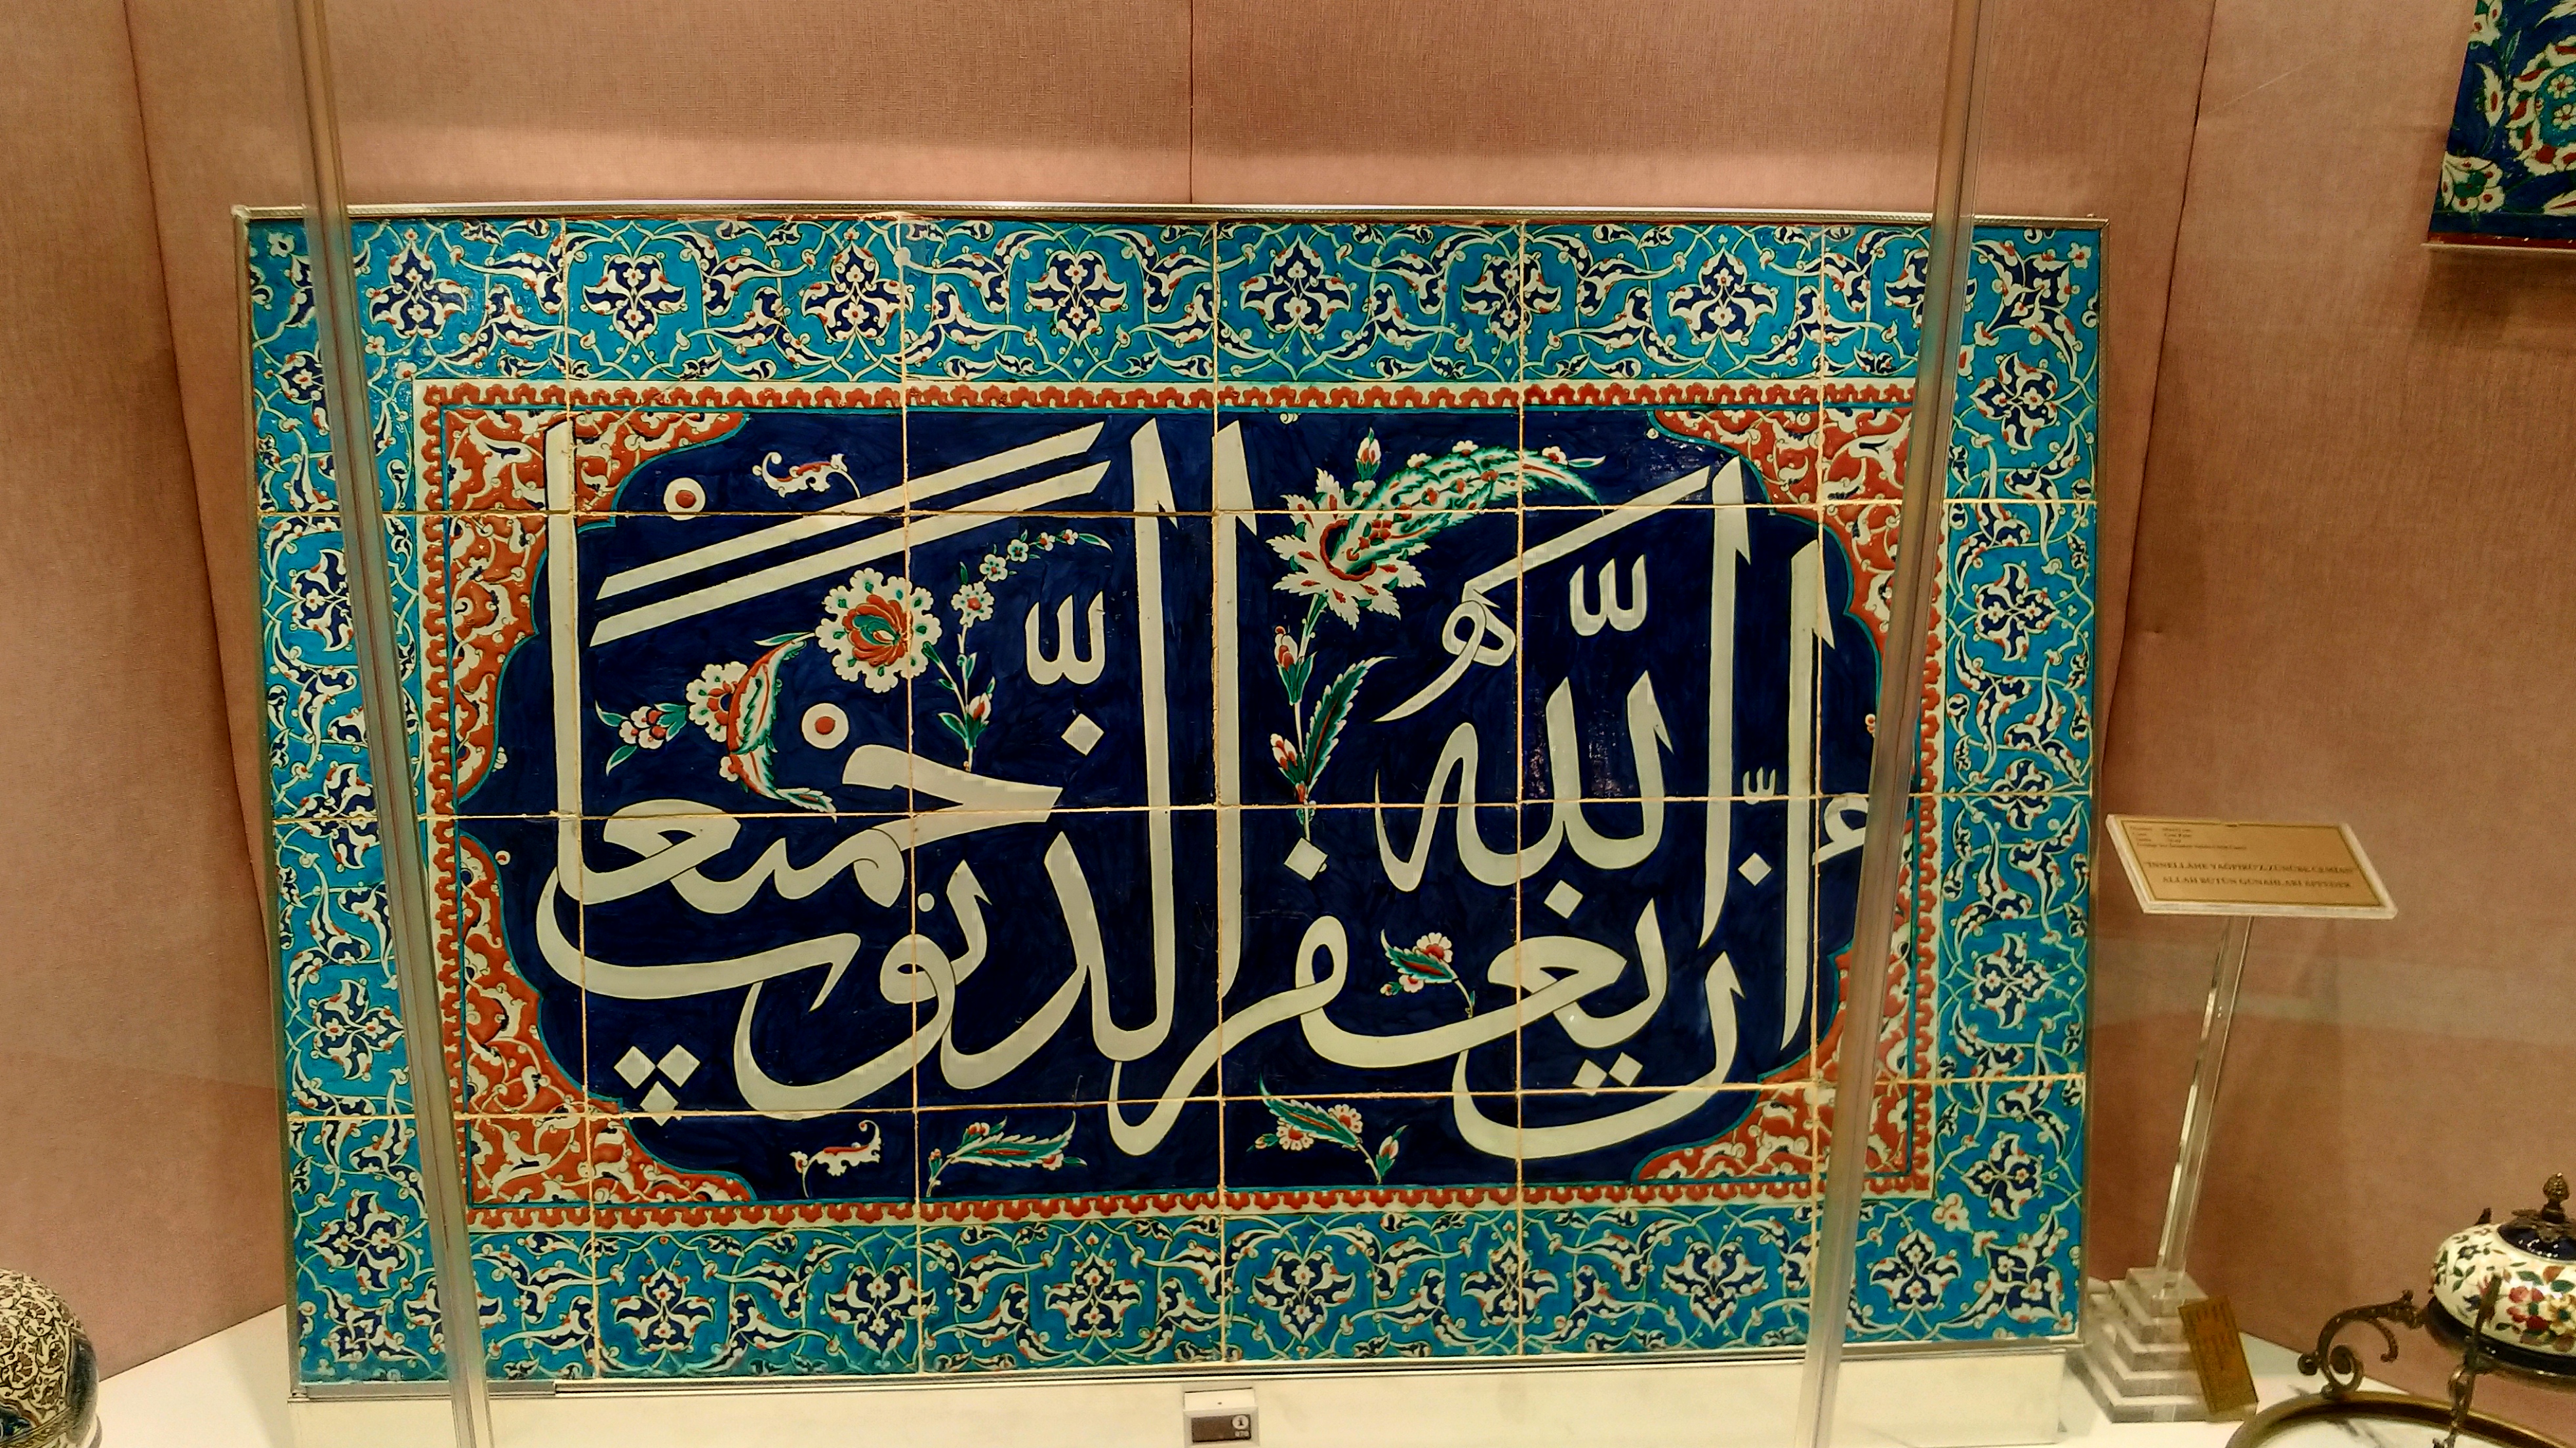 إن الله يغفر الذنوب جميعًا
"İNNELLAHE YAĞFİRÜ'Z-ZÜNÛBE CEMİAN"
ALLAH BÜTÜN GÜNAHLARI AFFEDER